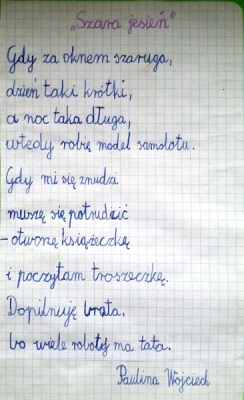 „Szara jesień"
Gdy za oknem szaruga,
dzień taki krótki,
a noc taka długa,
wtedy robię model samolotu.
Gdy mi się znudzi
muszę się potrudzić
– otworzę książeczkę
i poczytam troszeczkę.
Dopilnuję brata,
bo wiele roboty ma tata.
Paulina Wojciech